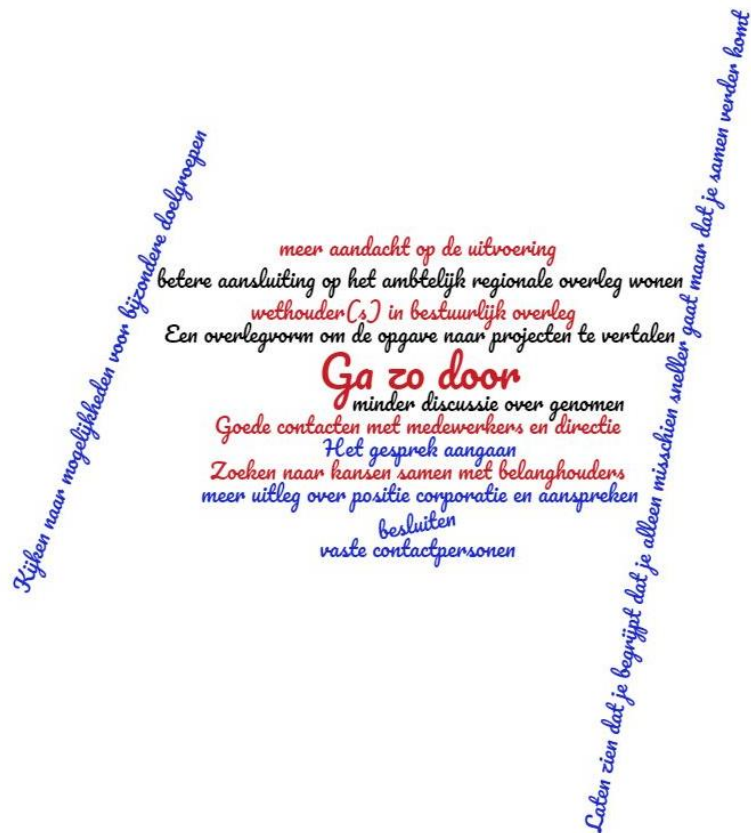 Kijken naar mogelijkheden voor bijzondere doelgroepen
meer aandacht op de uitvoering
betere aansluiting op het ambtelijk regionale overleg wonen
wethouder(s) in bestuurlijk overleg
Een overlegvorm om de opgave naar projecten te vertalen
Ga zo door
minder discussie over genomen
Goede contacten met medewerkers en directie
Het gesprek aangaan
Zoeken naar kansen samen met belanghouders
meer uitleg over positie corporatie en aanspreken
besluiten
vaste contactpersonen
Laten zien dat je begrijpt dat je alleen misschien sneller gaat maar dat je samen verder komt